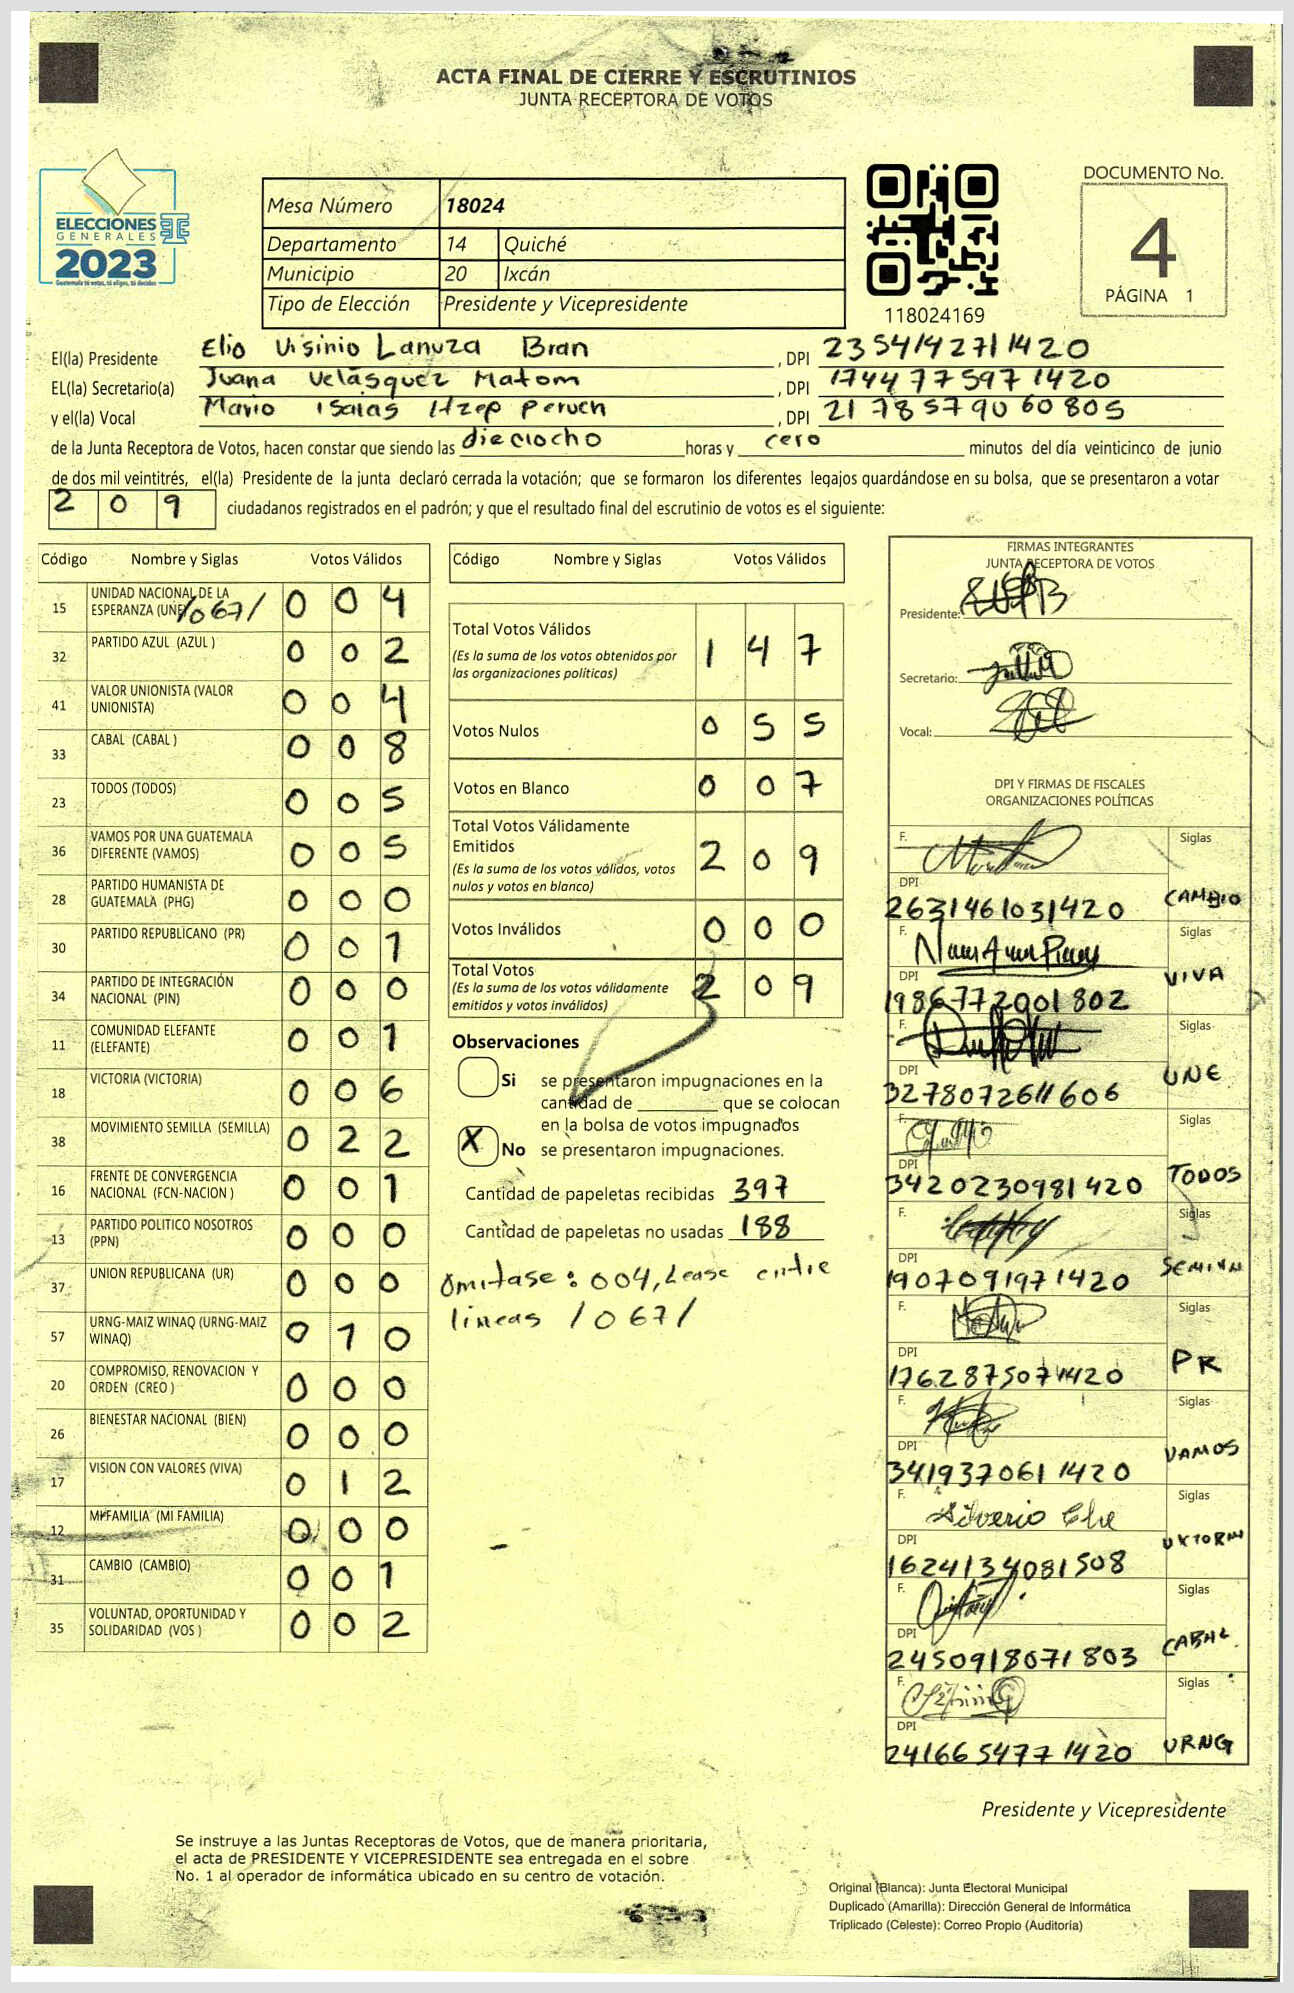 ACTA FINAL DE CIERRE Y ESCRUTINIOS
JUNTA RECEPTORA DE VOTOS
ELECCIONES
GENERALES
2023
Guatemala tú votas, tú eliges, tú decides
Mesa Número 18024
Departamento 14 Quiché
Municipio 20 Ixcán
Tipo de Elección Presidente y Vicepresidente
118024169
DOCUMENTO No.
4
PÁGINA 1
El(la) Presidente Elio Visinio Lanuza Bran, DPI 2354142711420
EL(la) Secretario(a) Juana Velásquez Matom, DPI 1744775971420
y el(la) Vocal Mario Isaias Itzep Peruch, DPI 2178579060805
de la Junta Receptora de Votos, hacen constar que siendo las dieciocho horas y cero minutos del día veinticinco de junio
de dos mil veintitrés, el(la) Presidente de la junta declaró cerrada la votación; que se formaron los diferentes legajos guardándose en su bolsa, que se presentaron a votar
209 ciudadanos registrados en el padrón; y que el resultado final del escrutinio de votos es el siguiente:
Código Nombre y Siglas Votos Válidos
15 UNIDAD NACIONAL DE LA ESPERANZA (UNE) /067/ 004
32 PARTIDO AZUL (AZUL ) 002
41 VALOR UNIONISTA (VALOR UNIONISTA) 004
33 CABAL (CABAL ) 008
23 TODOS (TODOS) 005
36 VAMOS POR UNA GUATEMALA DIFERENTE (VAMOS) 005
28 PARTIDO HUMANISTA DE GUATEMALA (PHG) 000
30 PARTIDO REPUBLICANO (PR) 001
34 PARTIDO DE INTEGRACIÓN NACIONAL (PIN) 000
11 COMUNIDAD ELEFANTE (ELEFANTE) 001
18 VICTORIA (VICTORIA) 006
38 MOVIMIENTO SEMILLA (SEMILLA) 022
16 FRENTE DE CONVERGENCIA NACIONAL (FCN-NACION ) 001
13 PARTIDO POLITICO NOSOTROS (PPN) 000
37 UNION REPUBLICANA (UR) 000
57 URNG-MAIZ WINAQ (URNG-MAIZ WINAQ) 010
20 COMPROMISO, RENOVACION Y ORDEN (CREO ) 000
26 BIENESTAR NACIONAL (BIEN) 000
17 VISION CON VALORES (VIVA) 012
12 MI FAMILIA (MI FAMILIA) 000
31 CAMBIO (CAMBIO) 001
35 VOLUNTAD, OPORTUNIDAD Y SOLIDARIDAD (VOS ) 002
Código Nombre y Siglas Votos Válidos
Total Votos Válidos 147
(Es la suma de los votos obtenidos por
las organizaciones políticas)
Votos Nulos 055
Votos en Blanco 007
Total Votos Válidamente
Emitidos 209
(Es la suma de los votos válidos, votos
nulos y votos en blanco)
Votos Inválidos 000
Total Votos 209
(Es la suma de los votos válidamente
emitidos y votos inválidos)
Observaciones
Si se presentaron impugnaciones en la
cantidad de ________ que se colocan
en la bolsa de votos impugnados
X No se presentaron impugnaciones.
Cantidad de papeletas recibidas 397
Cantidad de papeletas no usadas 188
Omitase: 004, Lease entre
lineas /067/
FIRMAS INTEGRANTES
JUNTA RECEPTORA DE VOTOS
Presidente:
Secretario:
Vocal:
DPI Y FIRMAS DE FISCALES
ORGANIZACIONES POLÍTICAS
F. Siglas
DPI 2631461031420 CAMBIO
F. Siglas
DPI 1986772001802 VIVA
F. Siglas
DPI 3278072611606 UNE
F. Siglas
DPI 3420230981420 TODOS
F. Siglas
DPI 1907091971420
F. Siglas
DPI 1762875071420 PR
F. Siglas
DPI 3419370611420 VAMOS
F. Silverio Che Siglas
DPI 1624134081508
F. Siglas
DPI 2450918071803 CABAL
F. Siglas
DPI 2416654771420 URNG
Presidente y Vicepresidente
Se instruye a las Juntas Receptoras de Votos, que de manera prioritaria,
el acta de PRESIDENTE Y VICEPRESIDENTE sea entregada en el sobre
No. 1 al operador de informática ubicado en su centro de votación.
Original (Blanca): Junta Electoral Municipal
Duplicado (Amarilla): Dirección General de Informática
Triplicado (Celeste): Correo Propio (Auditoría)